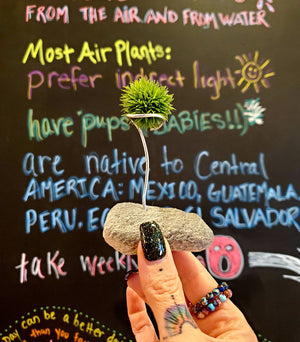 FROM THE AIR AND FROM WATER
Most Air Plants:
prefer indirect light
have pups BABIES!!)
are native to Central
AMERICA: MEXICO, GUATEMALA
PERU, EL SALVADOR
take week
ay can be a better d
than you